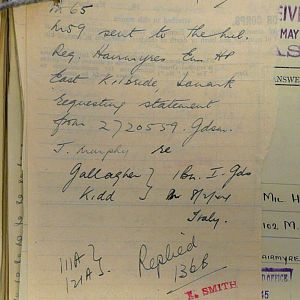 M 65
W59 sent to the Mil.
Reg. Hairmyres Em. HP
East Kilbride, Lanark
requesting statement
from 2720559. Gdsm.
J. Murphy re
Gallagher } 1 Bn. I. Gds
Kidd } 8/2/44
Italy.
111A }
121A }
Replied
136B
E. SMITH
MAY
ANSWE
MR H
102 M.
AIRMYRE
D OFFICE
45